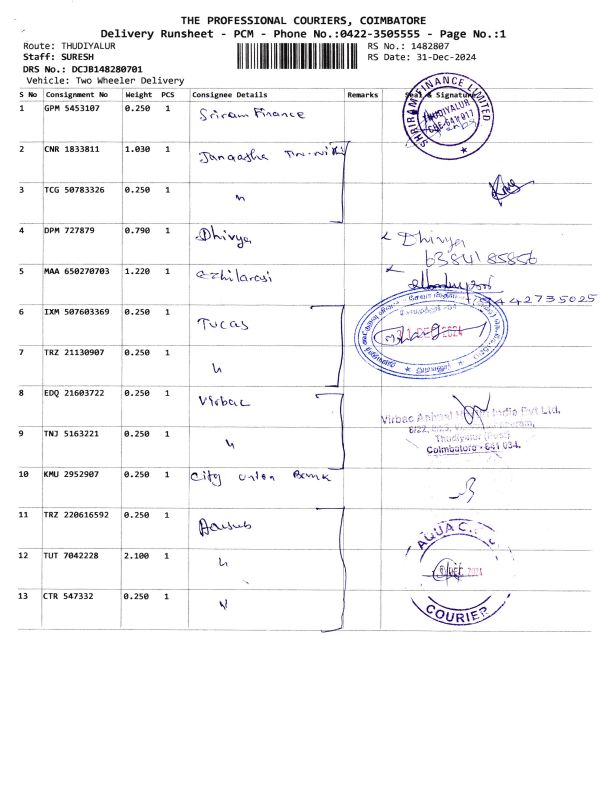 THE PROFESSIONAL COURIERS, COIMBATORE
Delivery Runsheet - PCM - Phone No.:0422-3505555 - Page No.:1
Route: THUDIYALUR
RS No.: 1482807
Staff: SURESH
RS Date: 31-Dec-2024
DRS No.: DCJB148280701
Vehicle: Two Wheeler Delivery
S No Consignment No Weight PCS Consignee Details Remarks Seal & Signature
1 GPM 5453107 0.250 1 Sriram Finance
SHRIRAM FINANCE LIMITED
THUDIYALUR
2 CNR 1833811 1.030 1
3 TCG 50783326 0.250 1 "
4 DPM 727879 0.790 1 Dhivya
Dhivya
6384185856
5 MAA 650270703 1.220 1 ezhilarasi
9442735025
6 IXM 507603369 0.250 1 Tucas
DEC 2024
7 TRZ 21130907 0.250 1 "
8 EDQ 21603722 0.250 1 Virbac
Virbac Animal Health India Pvt Ltd.
9 TNJ 5163221 0.250 1 "
Thudiyalur (Post)
Coimbatore - 641 034.
10 KMU 2952907 0.250 1 City Union Bank
11 TRZ 220616592 0.250 1
AQUA
12 TUT 7042228 2.100 1 "
DEC 2024
13 CTR 547332 0.250 1 "
COURIER